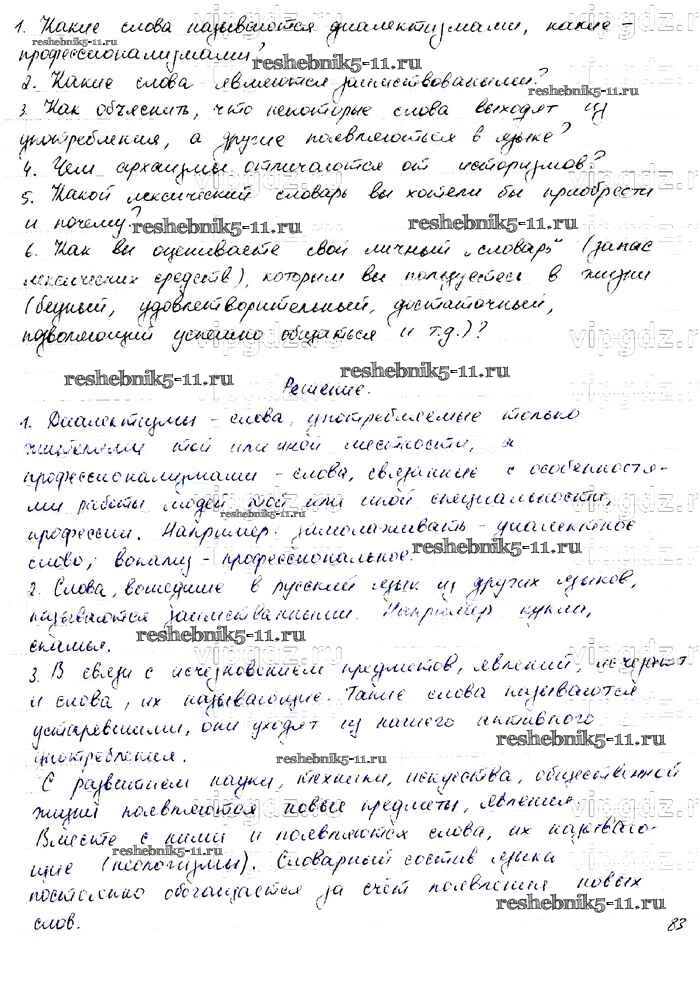 1. Какие слова называются диалектизмами, какие -
reshebnik5-11.ru
профессионализмами?
reshebnik5-11.ru
2. Какие слова являются заимствованными?
reshebnik5-11.ru
3. Как объяснить, что некоторые слова выходят из
употребления, а другие появляються в языке?
4. Чем архаизмы отличаются от историзмов?
5. Какой лексический словарь вы хотели бы приобрести
и почему?
reshebnik5-11.ru
reshebnik5-11.ru
6. Как вы оцениваете свой личный "словарь" (запас
лексических средств), которым вы пользуетесь в жизни
(бедный, удовлетворительный, достаточный,
позволяющий успешно общаться и т.д.)?
vipgdz.ru
reshebnik5-11.ru
reshebnik5-11.ru
Решение.
1. Диалектизмы - слова, употребляемые только
жителями той или иной местности, а
профессионализмами - слова, связанные с особенностя-
ми работы людей той или иной специальности,
reshebnik5-11.ru
профессии. Например: - диалектное
слово; - профессиональное.
reshebnik5-11.ru
2. Слова, вошедшие в русский язык из других языков,
называются заимстванными. Например кукла,
скамья.
reshebnik5-11.ru
3. В связи с исчезновением предметов, явлений, исчезают
и слова, их называющие. Такие слова называются
устаревшими, они уходят из нашего активного
употребления.
reshebnik5-11.ru
reshebnik5-11.ru
С развитием науки, техники, искусства, общественной
жизни появляются новые предметы, явления.
Вместе с ними и появляются слова, их называю-
щие (неологизмы). Словарный состав языка
reshebnik5-11.ru
постоянно обогащается за счёт появления новых
reshebnik5-11.ru
слов.
83